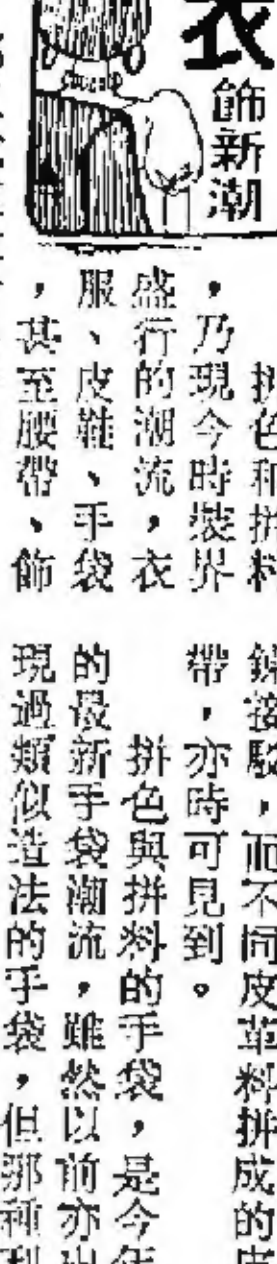 衣
飾新潮
拼色和拼料
，乃現今時裝界
盛行的潮流，衣
服、皮鞋、手袋
，甚至腰帶、飾
接駁，而不同皮革料拼成的皮
帶，亦時可見到。
拼色與拼料的手袋，是今年
的最新手袋潮流，雖然以前亦出
現過類似造法的手袋，但那種